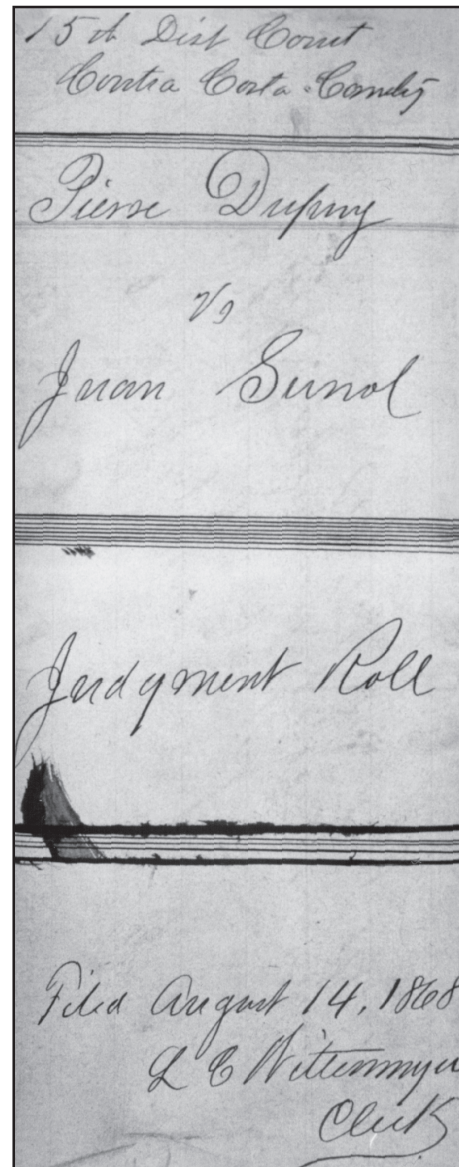 15th Dist Court
Contra Costa County
Pierre Dupuy
Vs
Juan Sunol
Judgment Roll
Filed August 14, 1868
L C Wittenmyer
Clerk